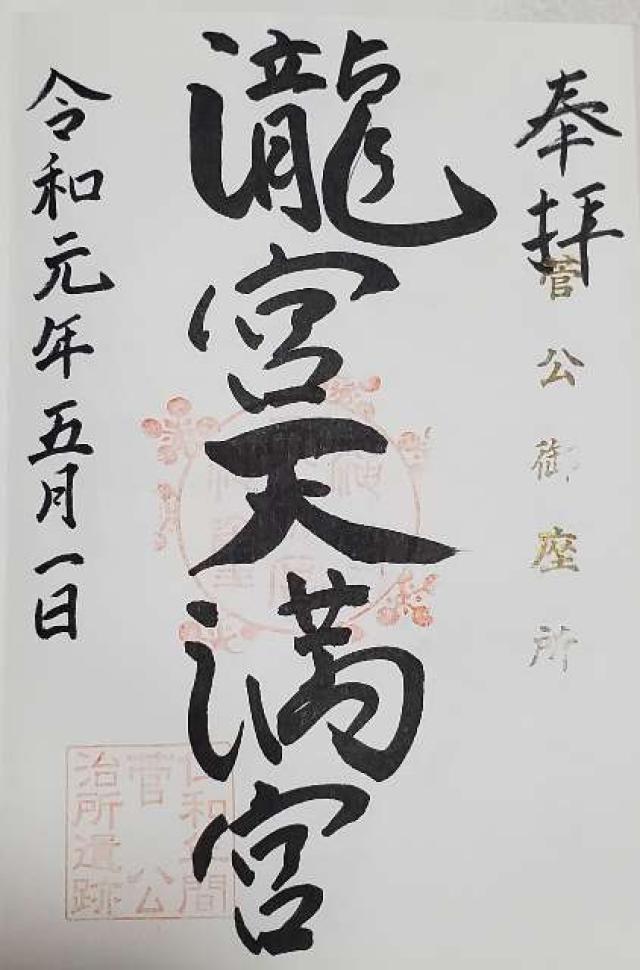 奉拝
菅公御座所
瀧宮天満宮
仁和年間
菅公
治所遺跡
令和元年五月一日